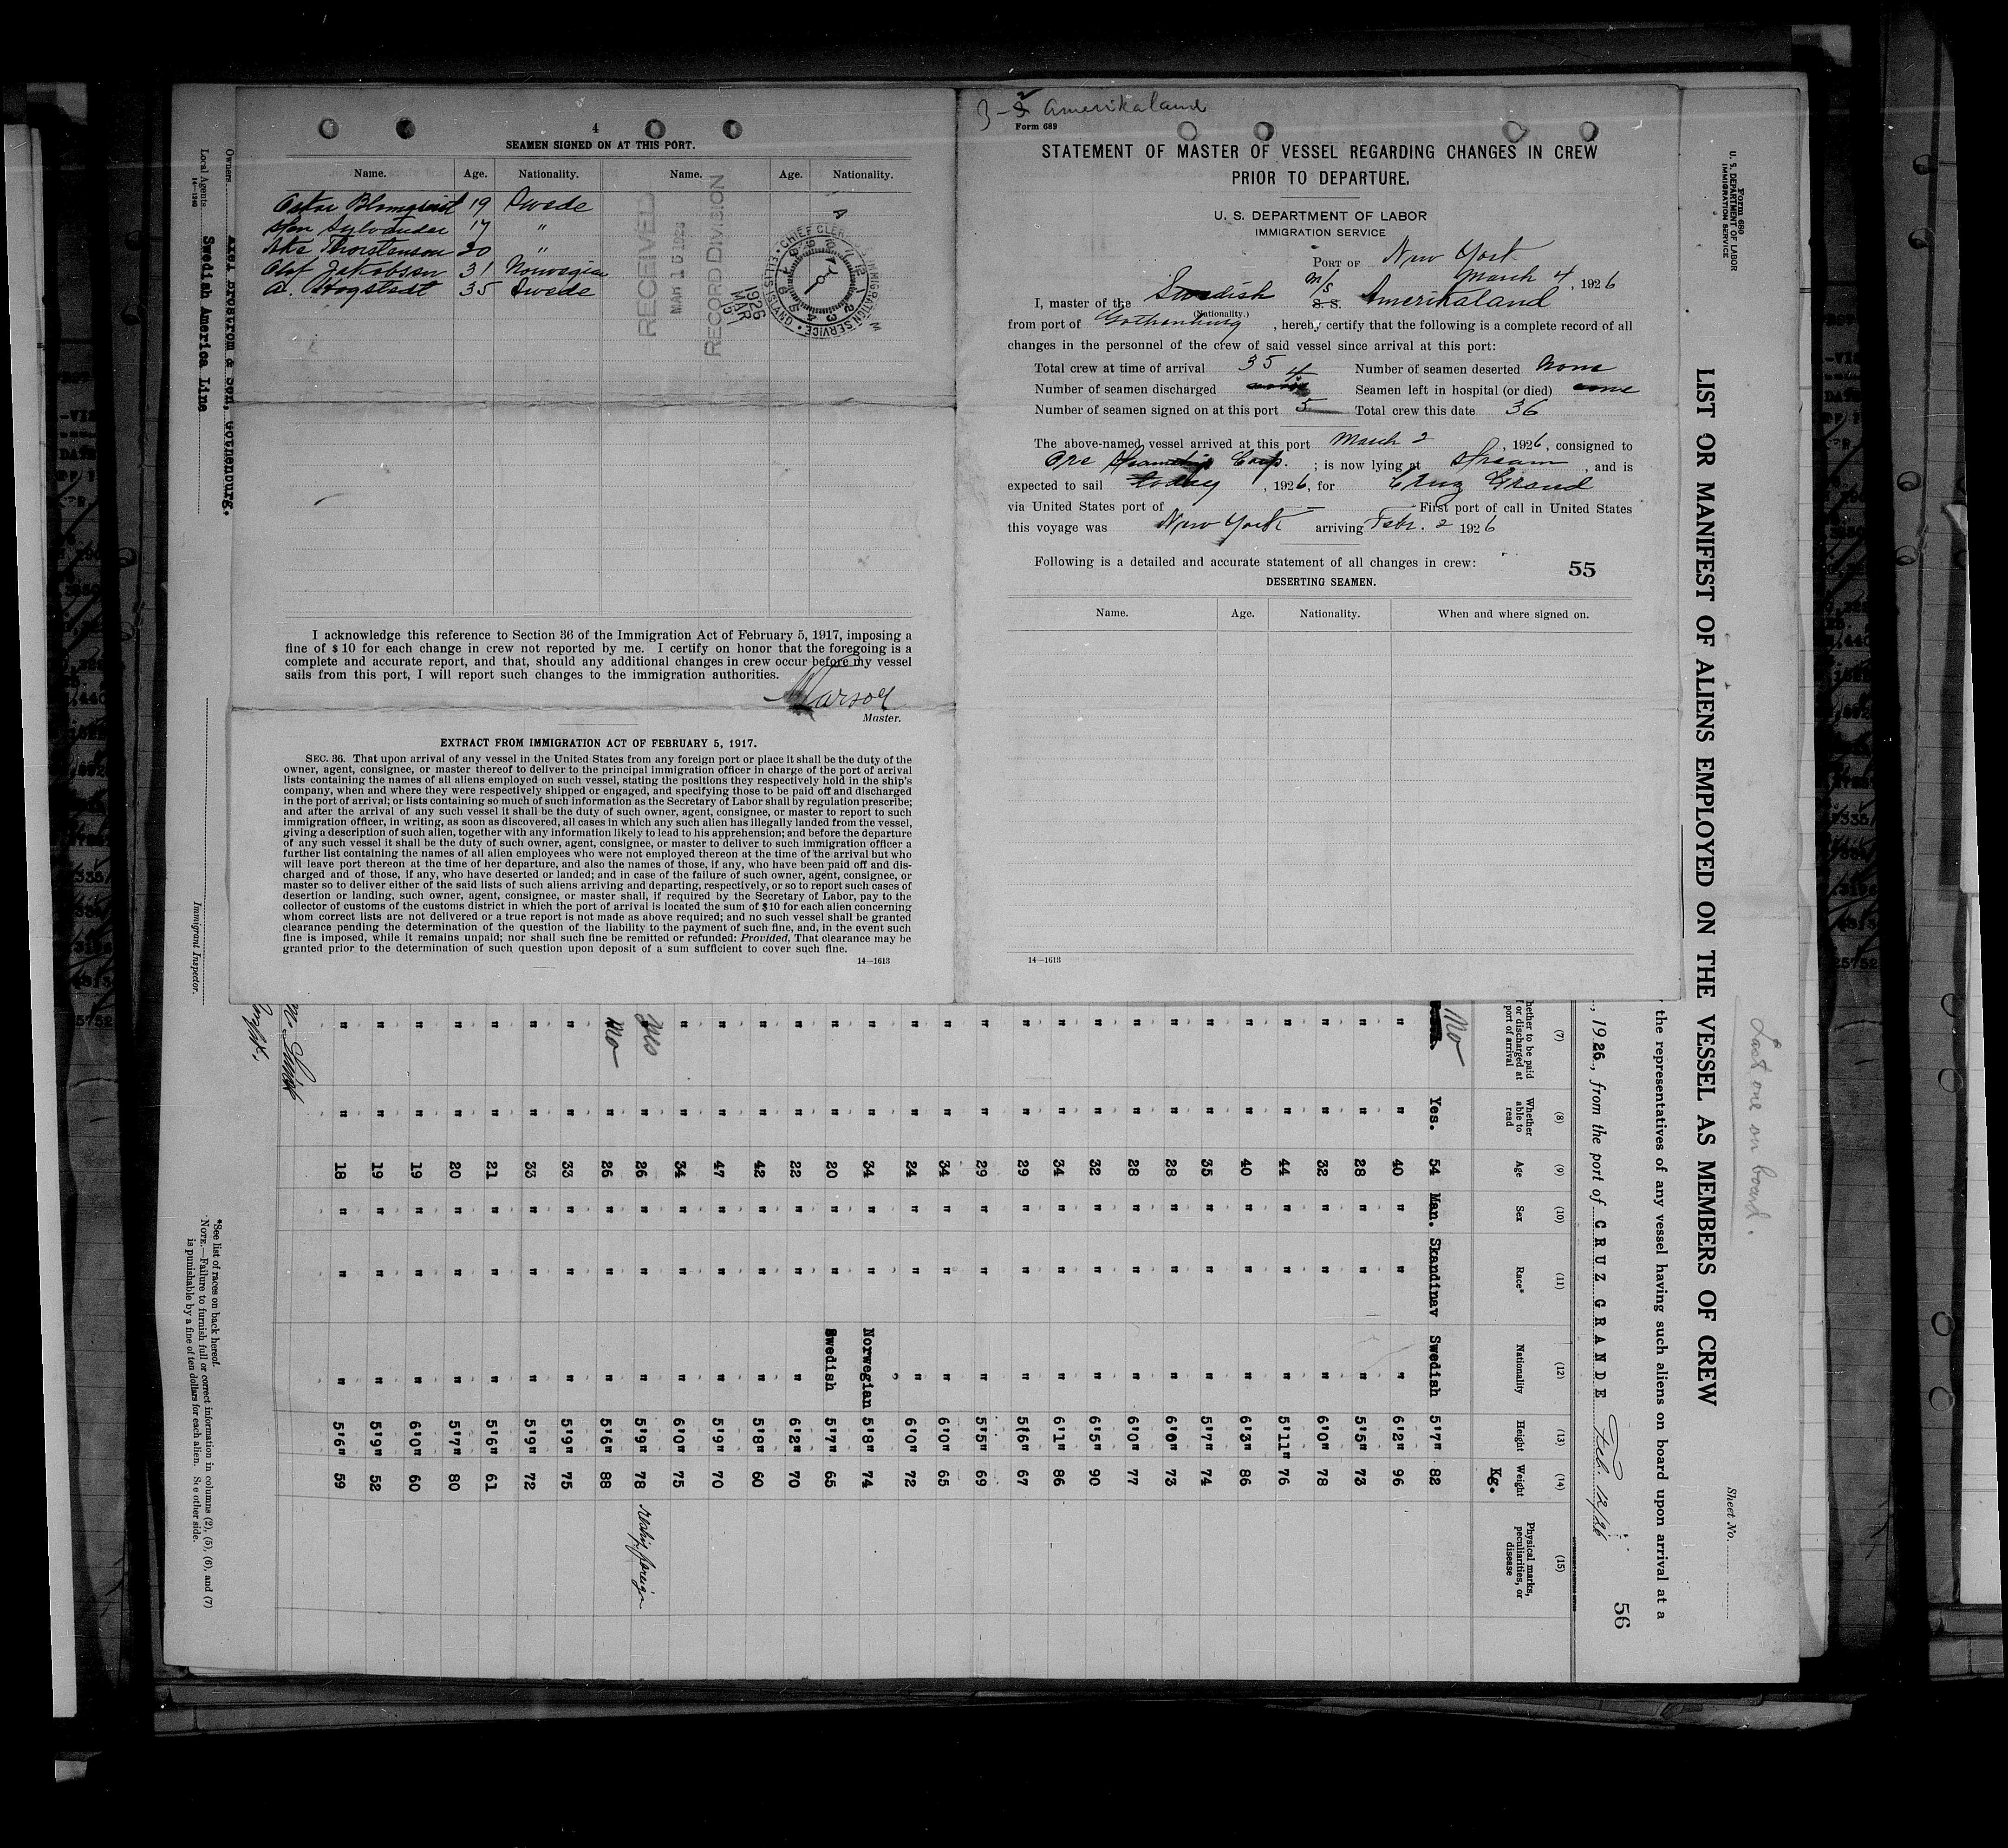 4
SEAMEN SIGNED ON AT THIS PORT.
Name. Age. Nationality. Name. Age. Nationality.
Oskar Blomqvist 19 Swede
Sten Sylvander 17 "
Åke Thorstenson 20 "
Olof Jakobsen 31 Norwegian
A. Hogstedt 35 Swede
RECEIVED
MAR 15 1926
RECORD DIVISION
CHIEF CLERK
IMMIGRATION SERVICE
ELLIS ISLAND
1926
MAR
15
I acknowledge this reference to Section 36 of the Immigration Act of February 5, 1917, imposing a
fine of $10 for each change in crew not reported by me. I certify on honor that the foregoing is a
complete and accurate report, and that, should any additional changes in crew occur before my vessel
sails from this port, I will report such changes to the immigration authorities.
Master.
EXTRACT FROM IMMIGRATION ACT OF FEBRUARY 5, 1917.
SEC. 36. That upon arrival of any vessel in the United States from any foreign port or place it shall be the duty of the
owner, agent, consignee, or master thereof to deliver to the principal immigration officer in charge of the port of arrival
lists containing the names of all aliens employed on such vessel, stating the positions they respectively hold in the ship's
company, when and where they were respectively shipped or engaged, and specifying those to be paid off and discharged
in the port of arrival; or lists containing so much of such information as the Secretary of Labor shall by regulation prescribe;
and after the arrival of any such vessel it shall be the duty of such owner, agent, consignee, or master to report to such
immigration officer, in writing, as soon as discovered, all cases in which any such alien has illegally landed from the vessel,
giving a description of such alien, together with any information likely to lead to his apprehension; and before the departure
of any such vessel it shall be the duty of such owner, agent, consignee, or master to deliver to such immigration officer a
further list containing the names of all alien employees who were not employed thereon at the time of the arrival but who
will leave port thereon at the time of her departure, and also the names of those, if any, who have been paid off and dis-
charged and of those, if any, who have deserted or landed; and in case of the failure of such owner, agent, consignee, or
master so to deliver either of the said lists of such aliens arriving and departing, respectively, or so to report such cases of
desertion or landing, such owner, agent, consignee, or master shall, if required by the Secretary of Labor, pay to the
collector of customs of the customs district in which the port of arrival is located the sum of $10 for each alien concerning
whom correct lists are not delivered or a true report is not made as above required; and no such vessel shall be granted
clearance pending the determination of the question of the liability to the payment of such fine, and, in the event such
fine is imposed, while it remains unpaid; nor shall such fine be remitted or refunded: Provided, That clearance may be
granted prior to the determination of such question upon deposit of a sum sufficient to cover such fine.
14—1613
3-2 Amerikaland
Form 689
STATEMENT OF MASTER OF VESSEL REGARDING CHANGES IN CREW
PRIOR TO DEPARTURE.
U. S. DEPARTMENT OF LABOR
IMMIGRATION SERVICE
PORT OF New York
March 4, 1926
I, master of the Swedish M/S S. S. Amerikaland
(Nationality.)
from port of Gothenburg, hereby certify that the following is a complete record of all
changes in the personnel of the crew of said vessel since arrival at this port:
Total crew at time of arrival 35 Number of seamen deserted None
Number of seamen discharged 4 Seamen left in hospital (or died) none
Number of seamen signed on at this port 5 Total crew this date 36
The above-named vessel arrived at this port March 2, 1926, consigned to
Ore Steamship Corp.; is now lying at Stream, and is
expected to sail today, 1926, for Cruz Grand
via United States port of First port of call in United States
this voyage was New York arriving Febr. 2 1926
Following is a detailed and accurate statement of all changes in crew:
55
DESERTING SEAMEN.
Name. Age. Nationality. When and where signed on.
14—1613
Form 680
U. S. DEPARTMENT OF LABOR
IMMIGRATION SERVICE
Last one on board.
Sheet No.
LIST OR MANIFEST OF ALIENS EMPLOYED ON THE VESSEL AS MEMBERS OF CREW
the representatives of any vessel having such aliens on board upon arrival at a
56
, 1926, from the port of CRUZ GRANDE Feb. 12/26
(7) (8) (9) (10) (11) (12) (13) (14) (15)
hether to be paid or discharged at port of arrival
Whether able to read
Age
Sex
Race*
Nationality
Height
Weight
Physical marks, peculiarities, or disease
Kg.
No Yes. 54 Man. Skandinav Swedish 5'7" 82
" " 40 " " " 6'2" 96
" " 28 " " " 5'5" 73
" " 32 " " " 6'0" 78
" " 44 " " " 5'11" 76
" " 40 " " " 6'3" 86
" " 35 " " " 5'7" 74
" " 28 " " " 6'0" 73
" " 28 " " " 6'0" 77
" " 32 " " " 6'5" 90
" " 34 " " " 6'1" 86
" " 29 " " " 5'6" 67
" " 29 " " " 5'5" 69
" " 34 " " " 6'0" 65
" " 24 " " " 6'0" 72
" " 34 " " Norwegian 5'8" 74
" " 20 " " Swedish 5'7" 65
" " 22 " " " 6'2" 70
" " 42 " " " 5'8" 60
" " 47 " " " 5'9" 70
" " 34 " " " 6'0" 75
" 26 " " " 5'9" 78 Reship foreign
No " 26 " " " 5'6" 88
" " 33 " " " 5'9" 75
" " 33 " " " 5'9" 72
" " 21 " " " 5'6" 61
" " 20 " " " 5'7" 80
" " 19 " " " 6'0" 60
" " 19 " " " 5'9" 52
" " 18 " " " 5'6" 59
*See list of races on back hereof.
NOTE.—Failure to furnish full or correct information in columns (2), (5), (6), and (7)
is punishable by a fine of ten dollars for each alien. See other side.
Owners Axel Brostrom & Son, Gothenburg.
Local Agents Swedish America Line
14—1240
Immigrant Inspector.